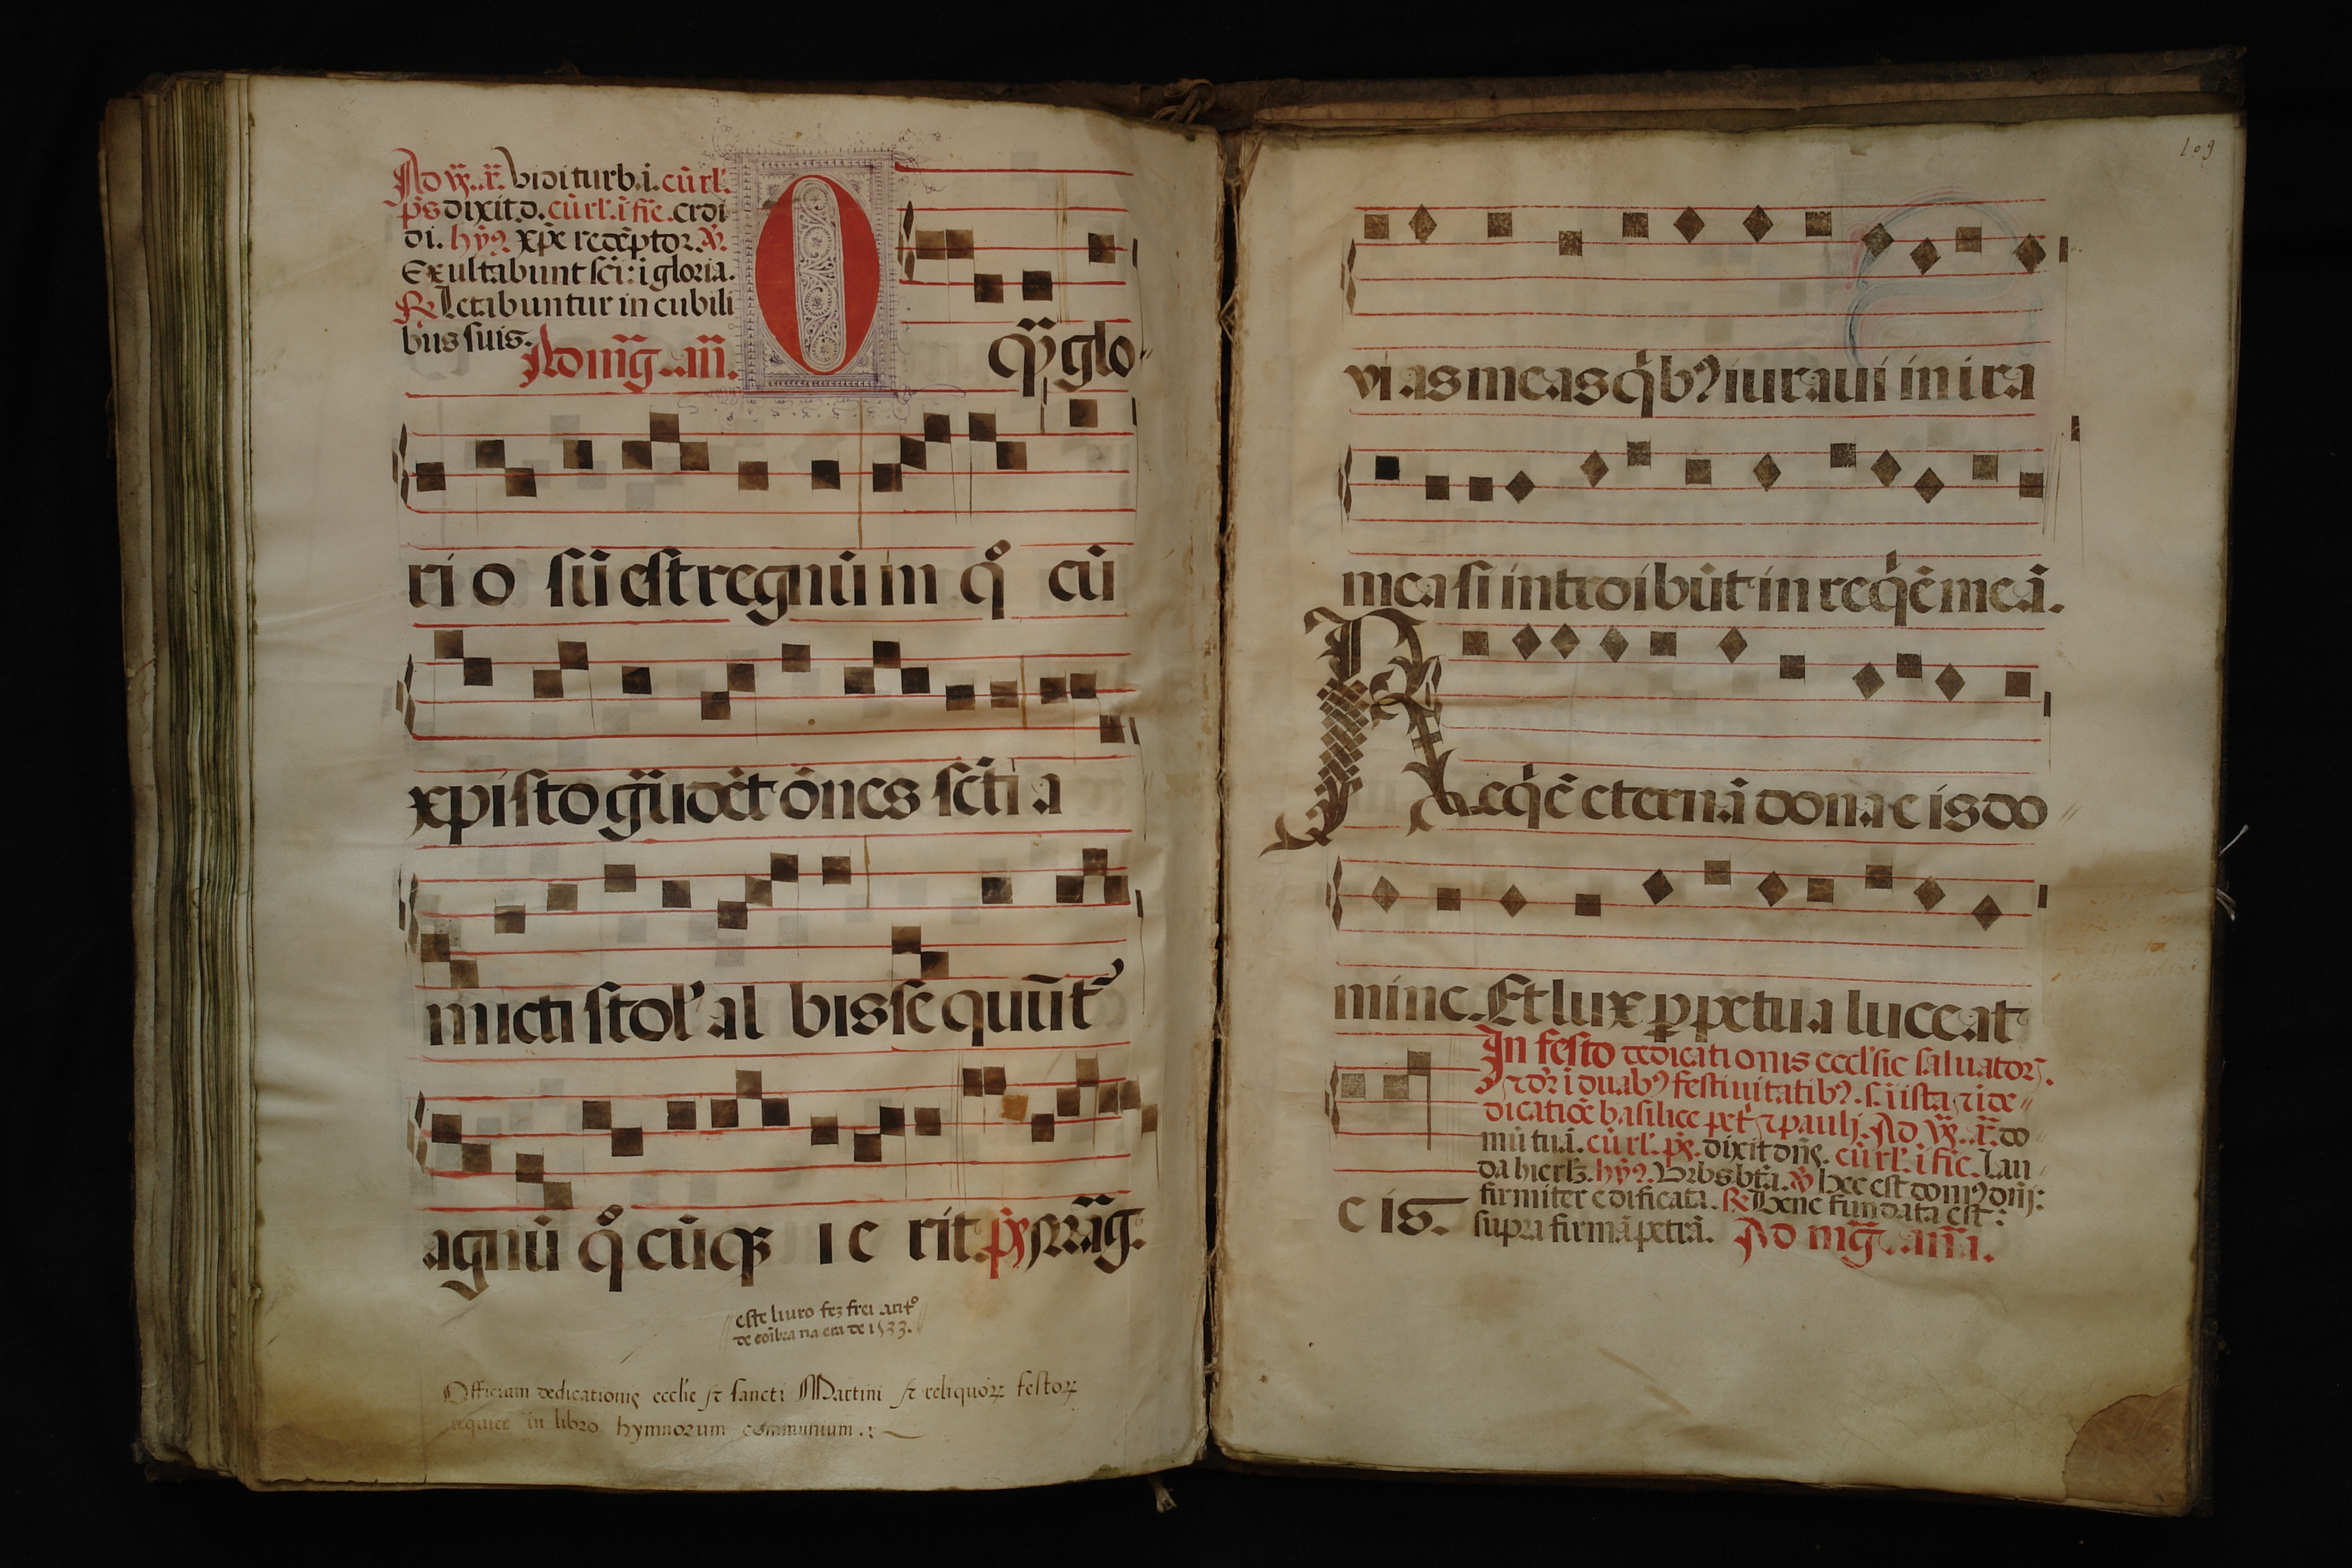 Ad vṝ. r̄. vidi turb. i. cū rl'.
p̄s dixit d. cū rl'. ī fīe. crdi
di. hȳꝰ xp̄e redēptor. v̄.
Exultabunt sc̄i: i gloria.
R Letabuntur in cubili
bus suis. Ad mg̅. an̄.
O q̄ȝ glo-
ri o sū est regnū in qͦ cū
xpisto gūdēt ōnes sc̄ti a
micti stol' al bis sequūt᷑
agnū qͦ cūqȝ i e rit. p̄s mag̅.
este liuro fez frei antͦ
de coībra na era de 1533.
Officium dedicationis ecclie et sancti Martini et reliquorꝝ festorꝝ
require in libro hymnorum communium.
109
vi as meas qͥbꝰ iuraui in ira
mea si introibūt in reqͥē meā.
Reqͥē eternā dona e is do
mine. Et lux ꝑpetua luceat
e is.
In festo dedicationis eccl'sie saluatorꝝ.
dicatiōe basilice pet' ⁊ pauli. Ad vṝ. r̄. do
mū tuā. cū rl'. p̄s. dixit dn̄s. cū rl'. ī fīe. Lau
da hierl̄z. hȳꝰ. Vrbs bt̄a. v̄ Hec est domꝰ dn̄j:
firmiter edificata. R Bene fundata est:
supra firmā petrā. Ad mg̅. an̄a.